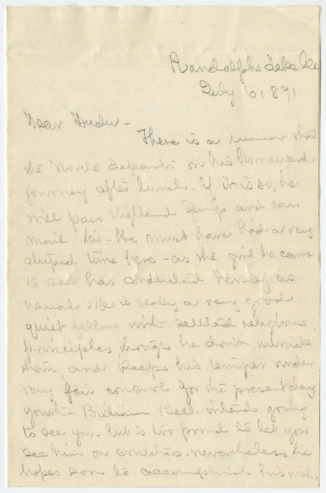 July 6, 1891
Dear
There is a rumor that
Mr Norole departs on his homeward
journey after lunch - if it is so, he
will pass Highland Springs and can
mail this - He must have had a very
stupid time here - as the girl he came
to see has conducted herself as
usual - He is really a very good
quiet fellow with settled religious
principles though he don't minds
them, and keeps his temper under
very fair control for the present day
youth - Billiams Bell intends going
to see you but is too proud to let you
see him on crutches - nevertheless he
hopes soon to accomplish his wish.